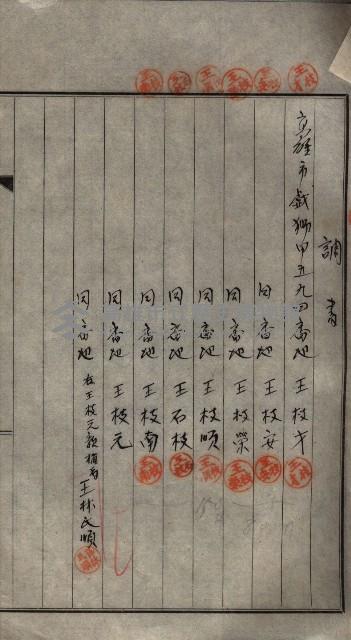 調書
高雄市戯獅甲五九四番地 王枝才
同番地 王枝安
同番地 王枝榮
同番地 王枝順
同番地 王石枝
同番地 王枝南
同番地 王枝元
同番地 右王枝元親權者 王林氏順